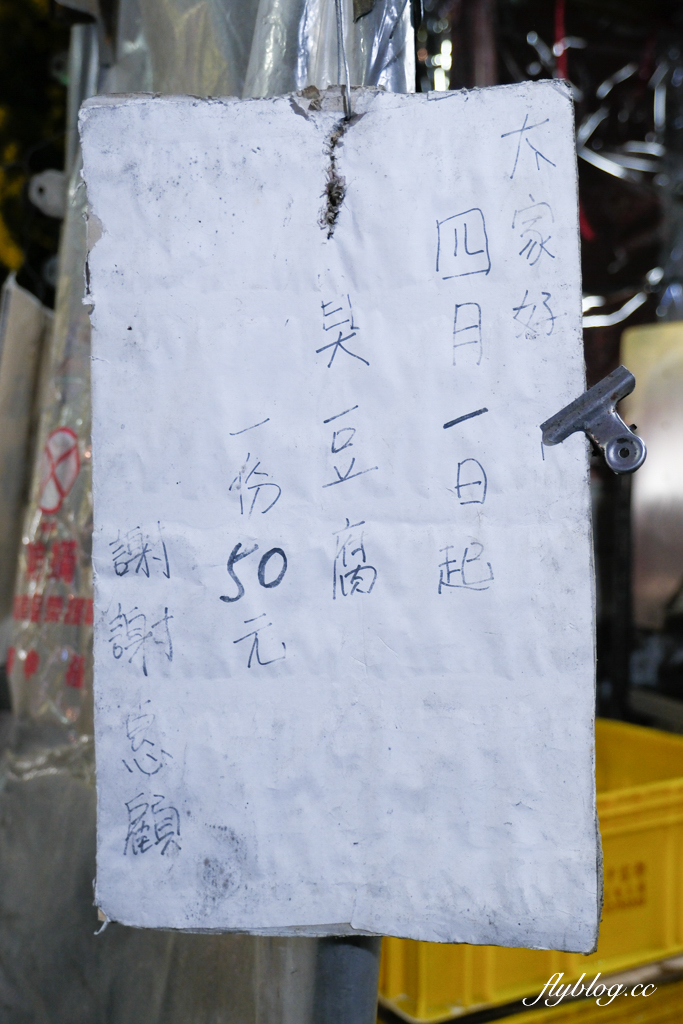 大家好
四月一日起
臭豆腐
一份50元
謝謝惠顧
flyblog.cc